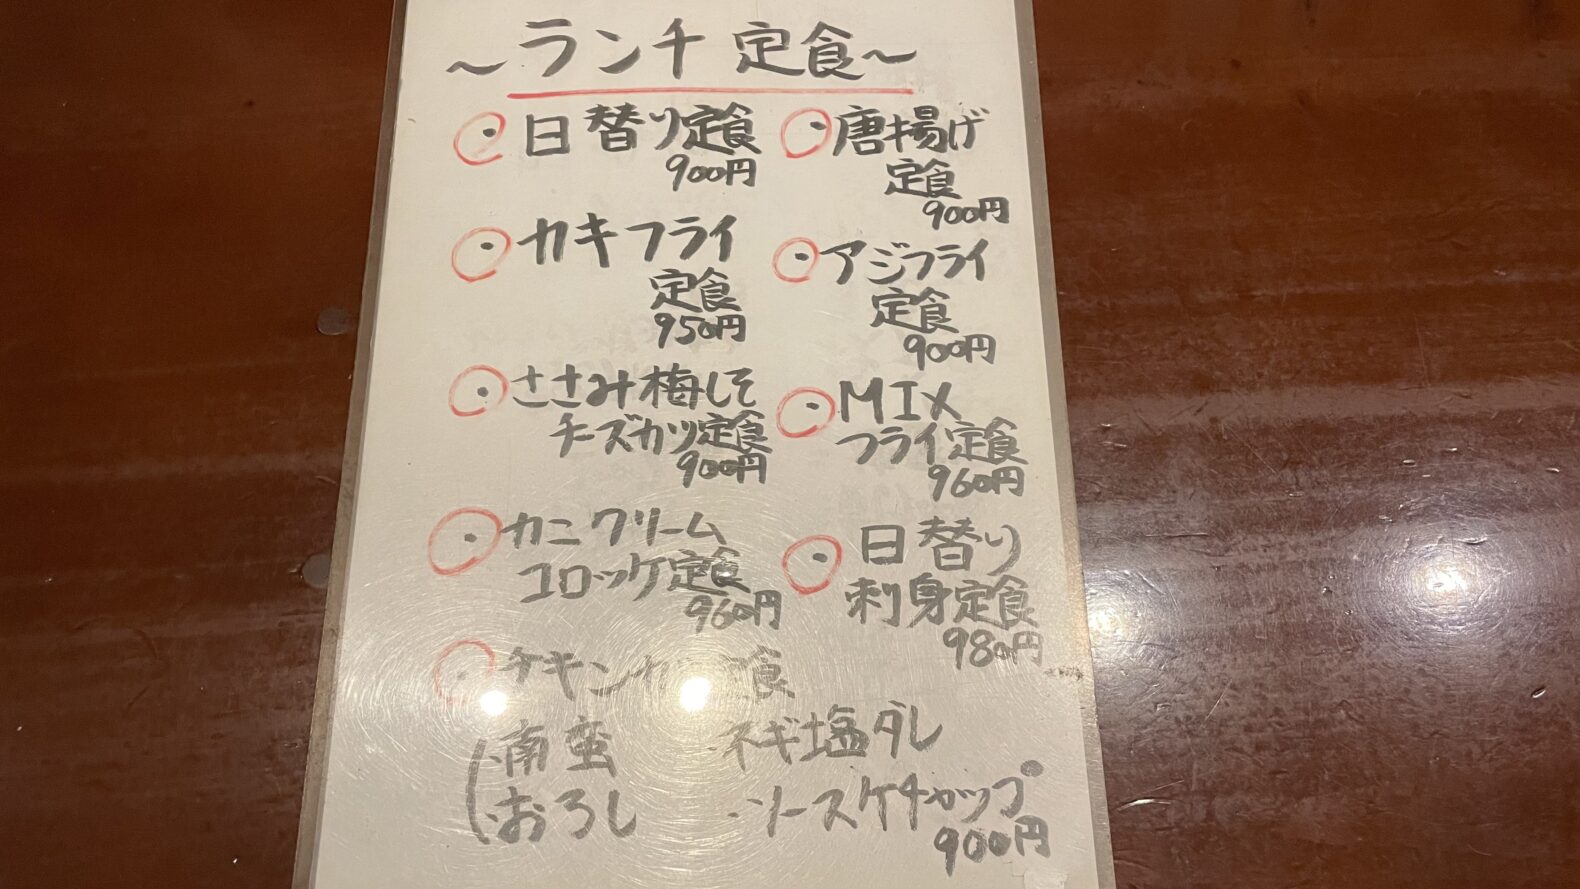 ～ランチ 定食～
・日替り定食
900円
・唐揚げ
定食
900円
・カキフライ
定食
950円
・アジフライ
定食
900円
・ささみ梅しそ
チーズカツ定食
900円
・MIX
フライ定食
960円
・カニクリーム
コロッケ定食
960円
・日替り
刺身定食
980円
チキンカ 食
・南蛮 ・ネギ塩ダレ
・おろし ・ソースケチャップ
900円